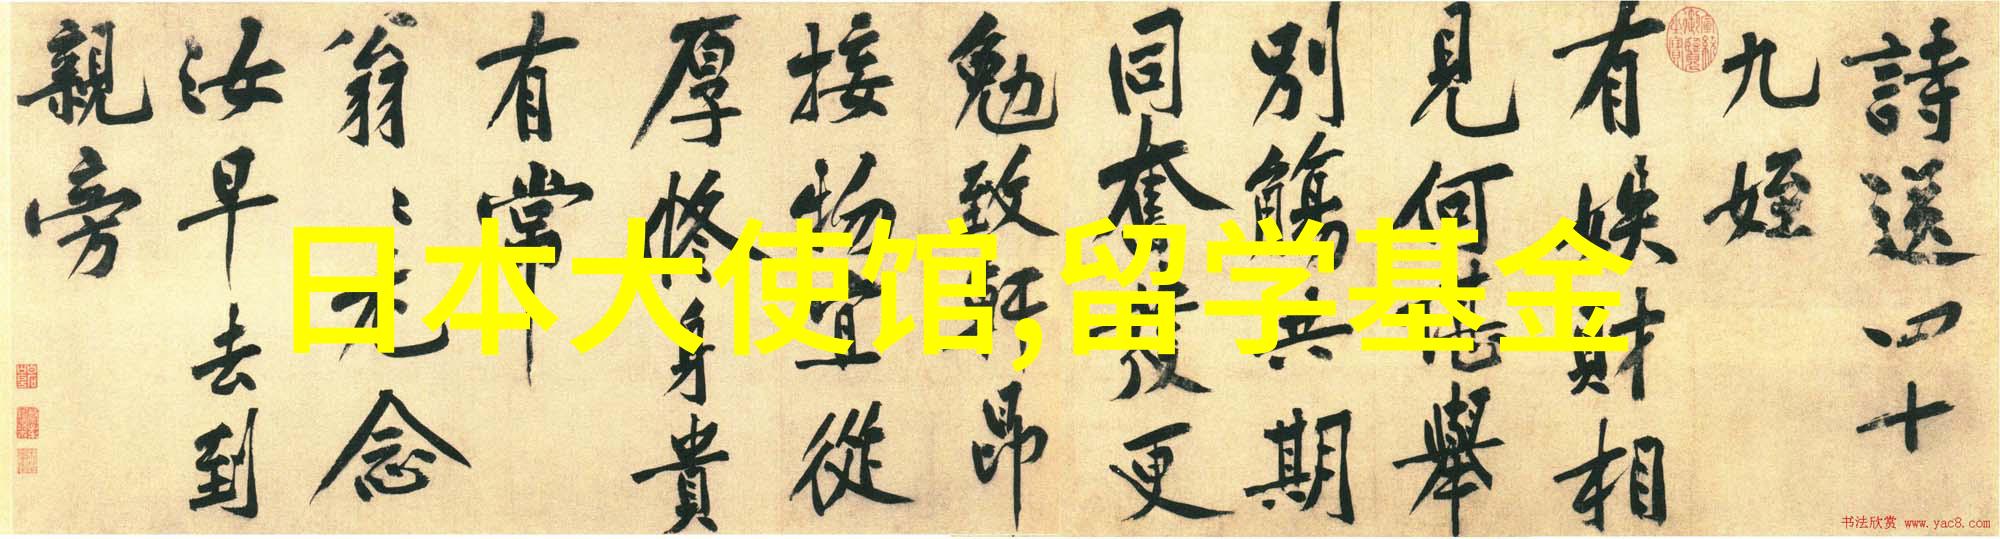 詩送四十
九姪
有娛財相
見何舉
別觴共期
同奮發更
勉致軒昂
接物宜從
厚修身貴
有常
翁〻尤念
汝早去到
親旁
日本大使馆,留学基金
书法欣赏 www.yac8.com